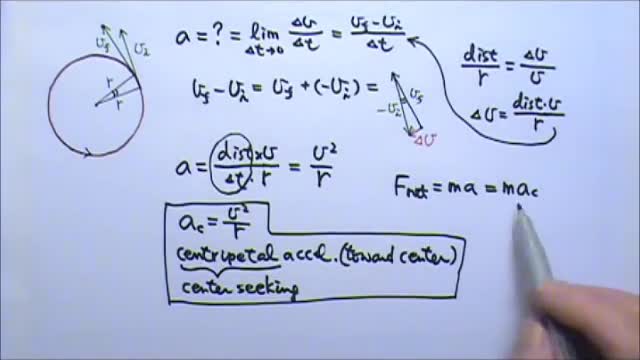 v_f v_i
r
r
a = ? = lim Δt→0 Δv/Δt = (v_f - v_i)/Δt
v_f - v_i = v_f + (-v_i) =
-v_i v_f
Δv
dist/r = Δv/v
Δv = dist·v/r
a = dist×v/Δt·r = v²/r
F_net = ma = ma_c
a_c = v²/r
centripetal accel. (toward center)
center seeking